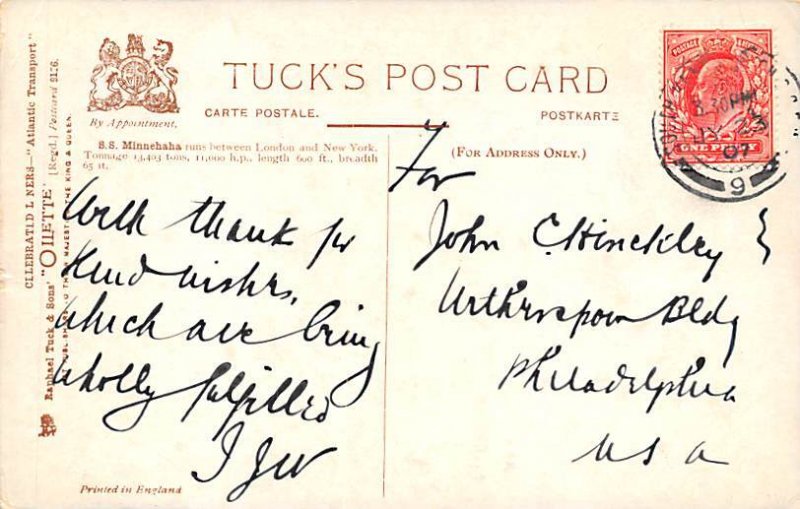 TUCK'S POST CARD
CARTE POSTALE.
POSTKARTE
By Appointment.
S.S. Minnehaha runs between London and New York.
Tonnage 13,403 tons, 11,000 h.p., length 600 ft., breadth
65 ft.
(FOR ADDRESS ONLY.)
CELEBRATED LINERS—"Atlantic Transport"
Raphael Tuck & Sons' "OILETTE" [Regd.] Postcard 9126.
PUBLISHERS TO THEIR MAJESTIES THE KING & QUEEN.
With thanks for
Kind wishes,
which are being
wholly fulfilled
For
John C Hinckley
Bldg
Philadelphia
U S A
Printed in England
POSTAGE
ONE PENNY
8.30 PM
07
9